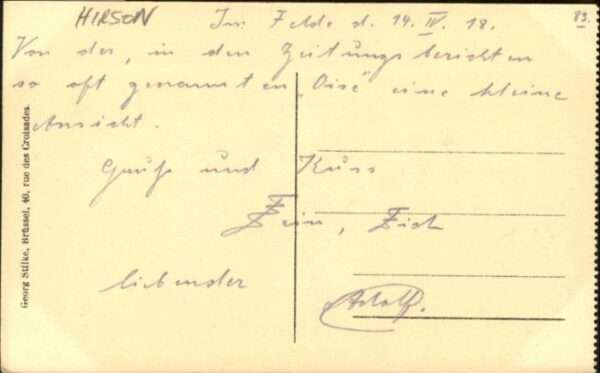 HIRSON Im Felde d. 14. IV. 18. 83.
Von der, in den Zeitungsberichten
so oft genannten „Oise“ eine kleine
Ansicht.
Gruß und Kuss
Dein, Dich
liebender
Adolf.
Georg Stilke, Brüssel, 40, rue des Croisades.